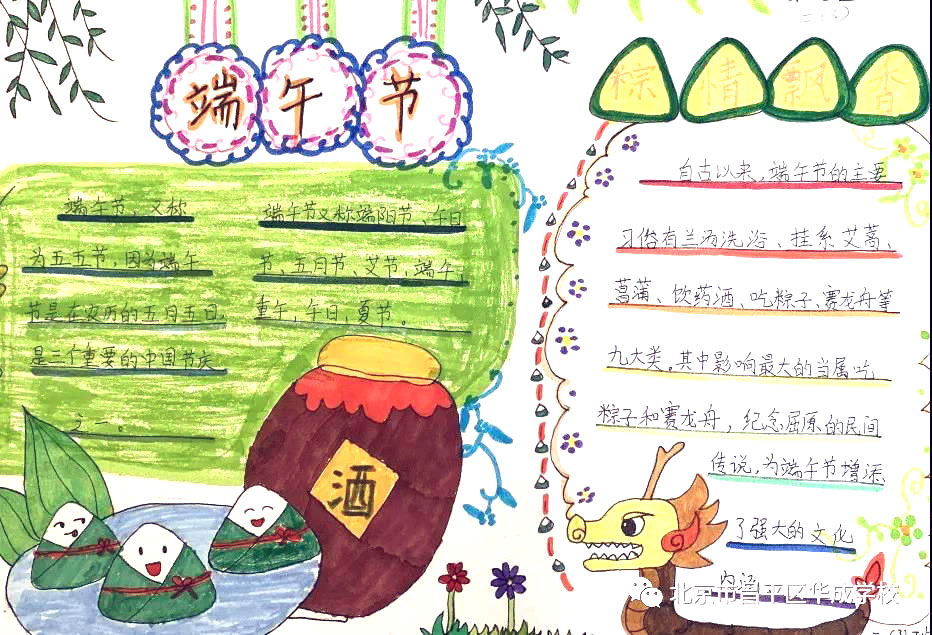 端午节
端午节,又称
为五五节,因为端午
节是在农历的五月五日,
是三个重要的中国节庆
之一。
端午节又称端阳节、午日
节、五月节、艾节,端午,
重午,午日,夏节。
酒
粽情飘香
自古以来,端午节的主要
习俗有兰汤洗浴、挂系艾蒿、
菖蒲、饮药酒、吃粽子、赛龙舟等
九大类。其中影响最大的当属吃
粽子和赛龙舟,纪念屈原的民间
传说,为端午节增添
了强大的文化
内涵
北京市昌平区华成学校